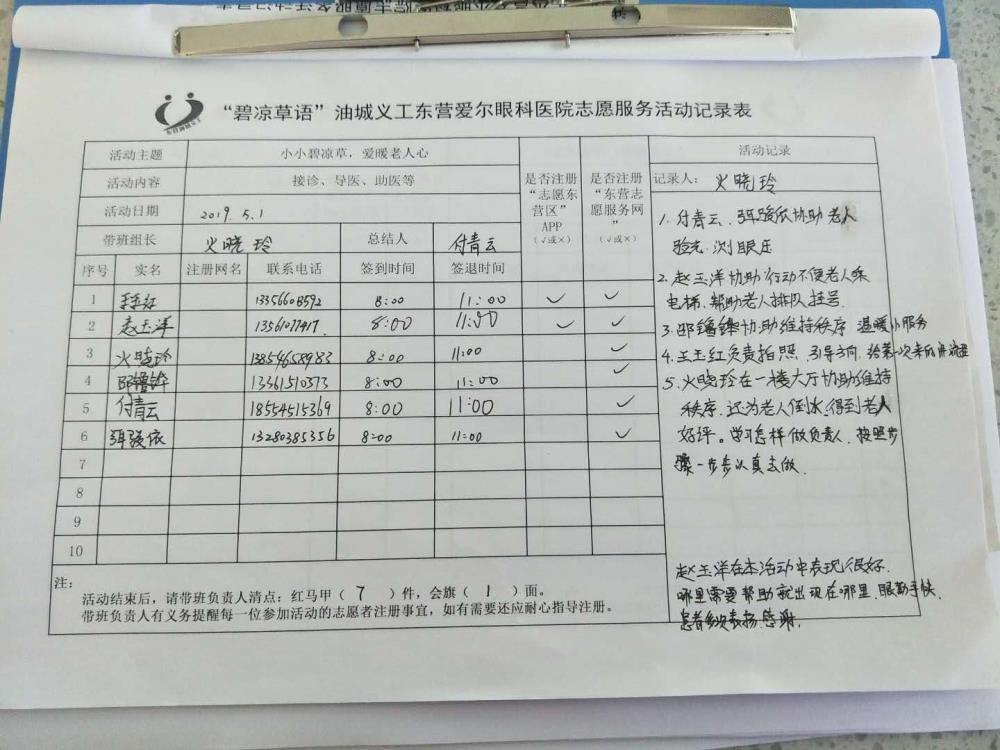 “碧凉草语”油城义工东营爱尔眼科医院志愿服务活动记录表
活动主题 小小碧凉草，爱暖老人心
活动内容 接诊、导医、助医等
活动日期 2019.5.1
带班组长 火晓玲 总结人 付青云
是否注册“志愿东营区”APP（√或×）
是否注册“东营志愿服务网”（√或×）
序号 实名 注册网名 联系电话 签到时间 签退时间
1 13356608592 8:00 11:00 ✓ ✓
2 赵玉洋 13561077417 8:00 11:00 ✓ ✓
3 火晓玲 13854658983 8:00 11:00 ✓
4 13361510573 8:00 11:00 ✓
5 付青云 18554515369 8:00 11:00 ✓
6 13280385356 8:00 11:00 ✓
7
8
9
10
注：
活动结束后，请带班负责人清点：红马甲（7）件，会旗（1）面。
带班负责人有义务提醒每一位参加活动的志愿者注册事宜，如有需要还应耐心指导注册。
活动记录
记录人：火晓玲
1. 付青云、协助老人
验光、测眼压
2. 赵玉洋协助行动不便老人乘
电梯、帮助老人排队挂号
3. 协助维持秩序 温暖小服务
4. 王玉红负责拍照、引导方向、给第一次来的讲流程
5. 火晓玲在一楼大厅协助维持
秩序、还为老人倒水、得到老人
好评。学习怎样做负责人、按照步
骤一步步认真去做
赵玉洋在本活动中表现很好。
哪里需要帮助就出现在哪里、眼勤手快、
患者多次表扬、感谢。